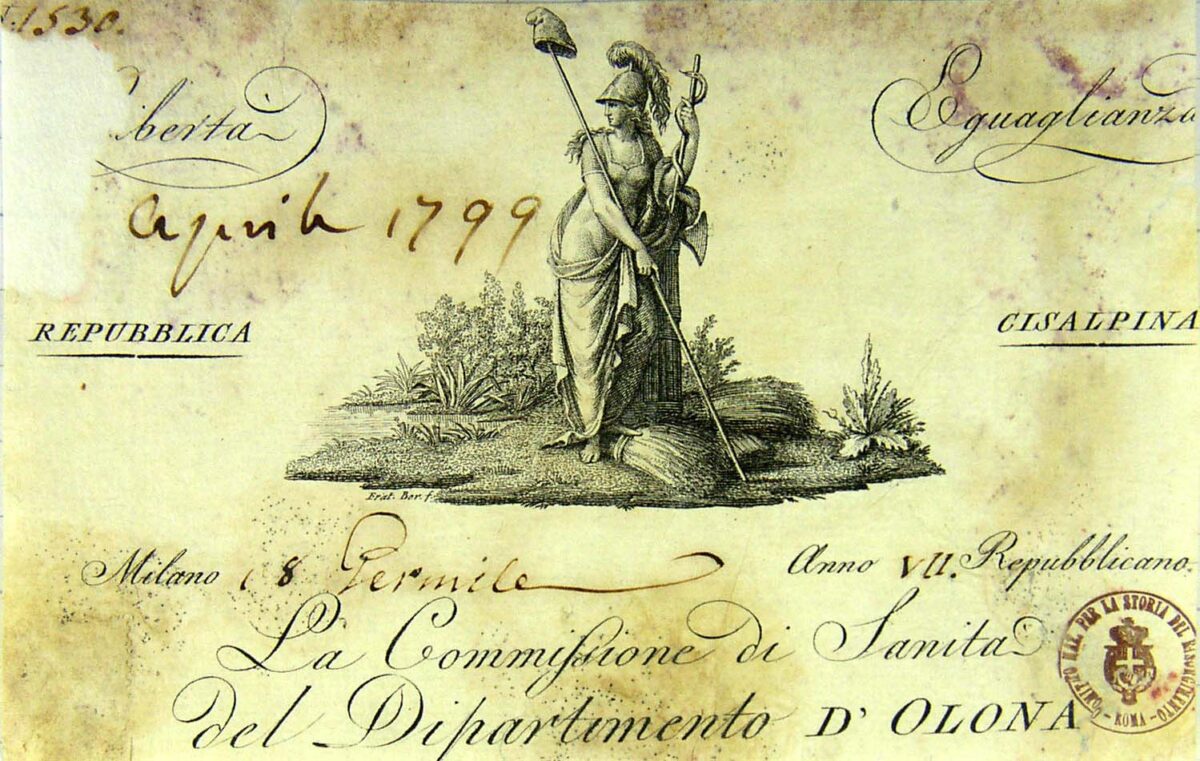 1530.
ibertà Eguaglianza
aprile 1799
REPUBBLICA CISALPINA
Frat. Bor. f.
Milano 18 Germile Anno VII. Repubblicano.
La Commissione di Sanità
del Dipartimento D' OLONA
COMITATO NAZ. PER LA STORIA DEL RISORGIMENTO - ROMA -